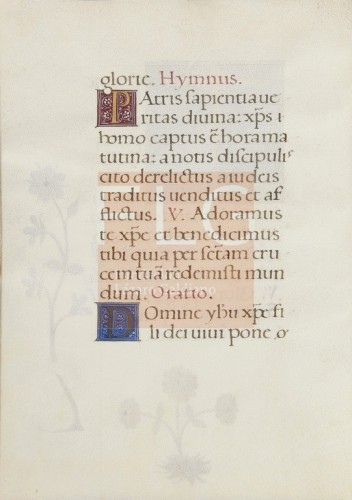 glorie. Hymnus.
PAtris sapientia ue
ritas diuina: xp̄s i
homo captus ē hora ma
tutina: a notis discipulis
cito derelictus a iudeis
traditus uenditus et af
flictus. V. Adoramus
te xp̄e et benedicimus
tibi quia per sc̄tam cru
cem tuā redemisti mun
dum. Oratio.
DOmine yhu xp̄e fi
li dei uiui pone
FLG